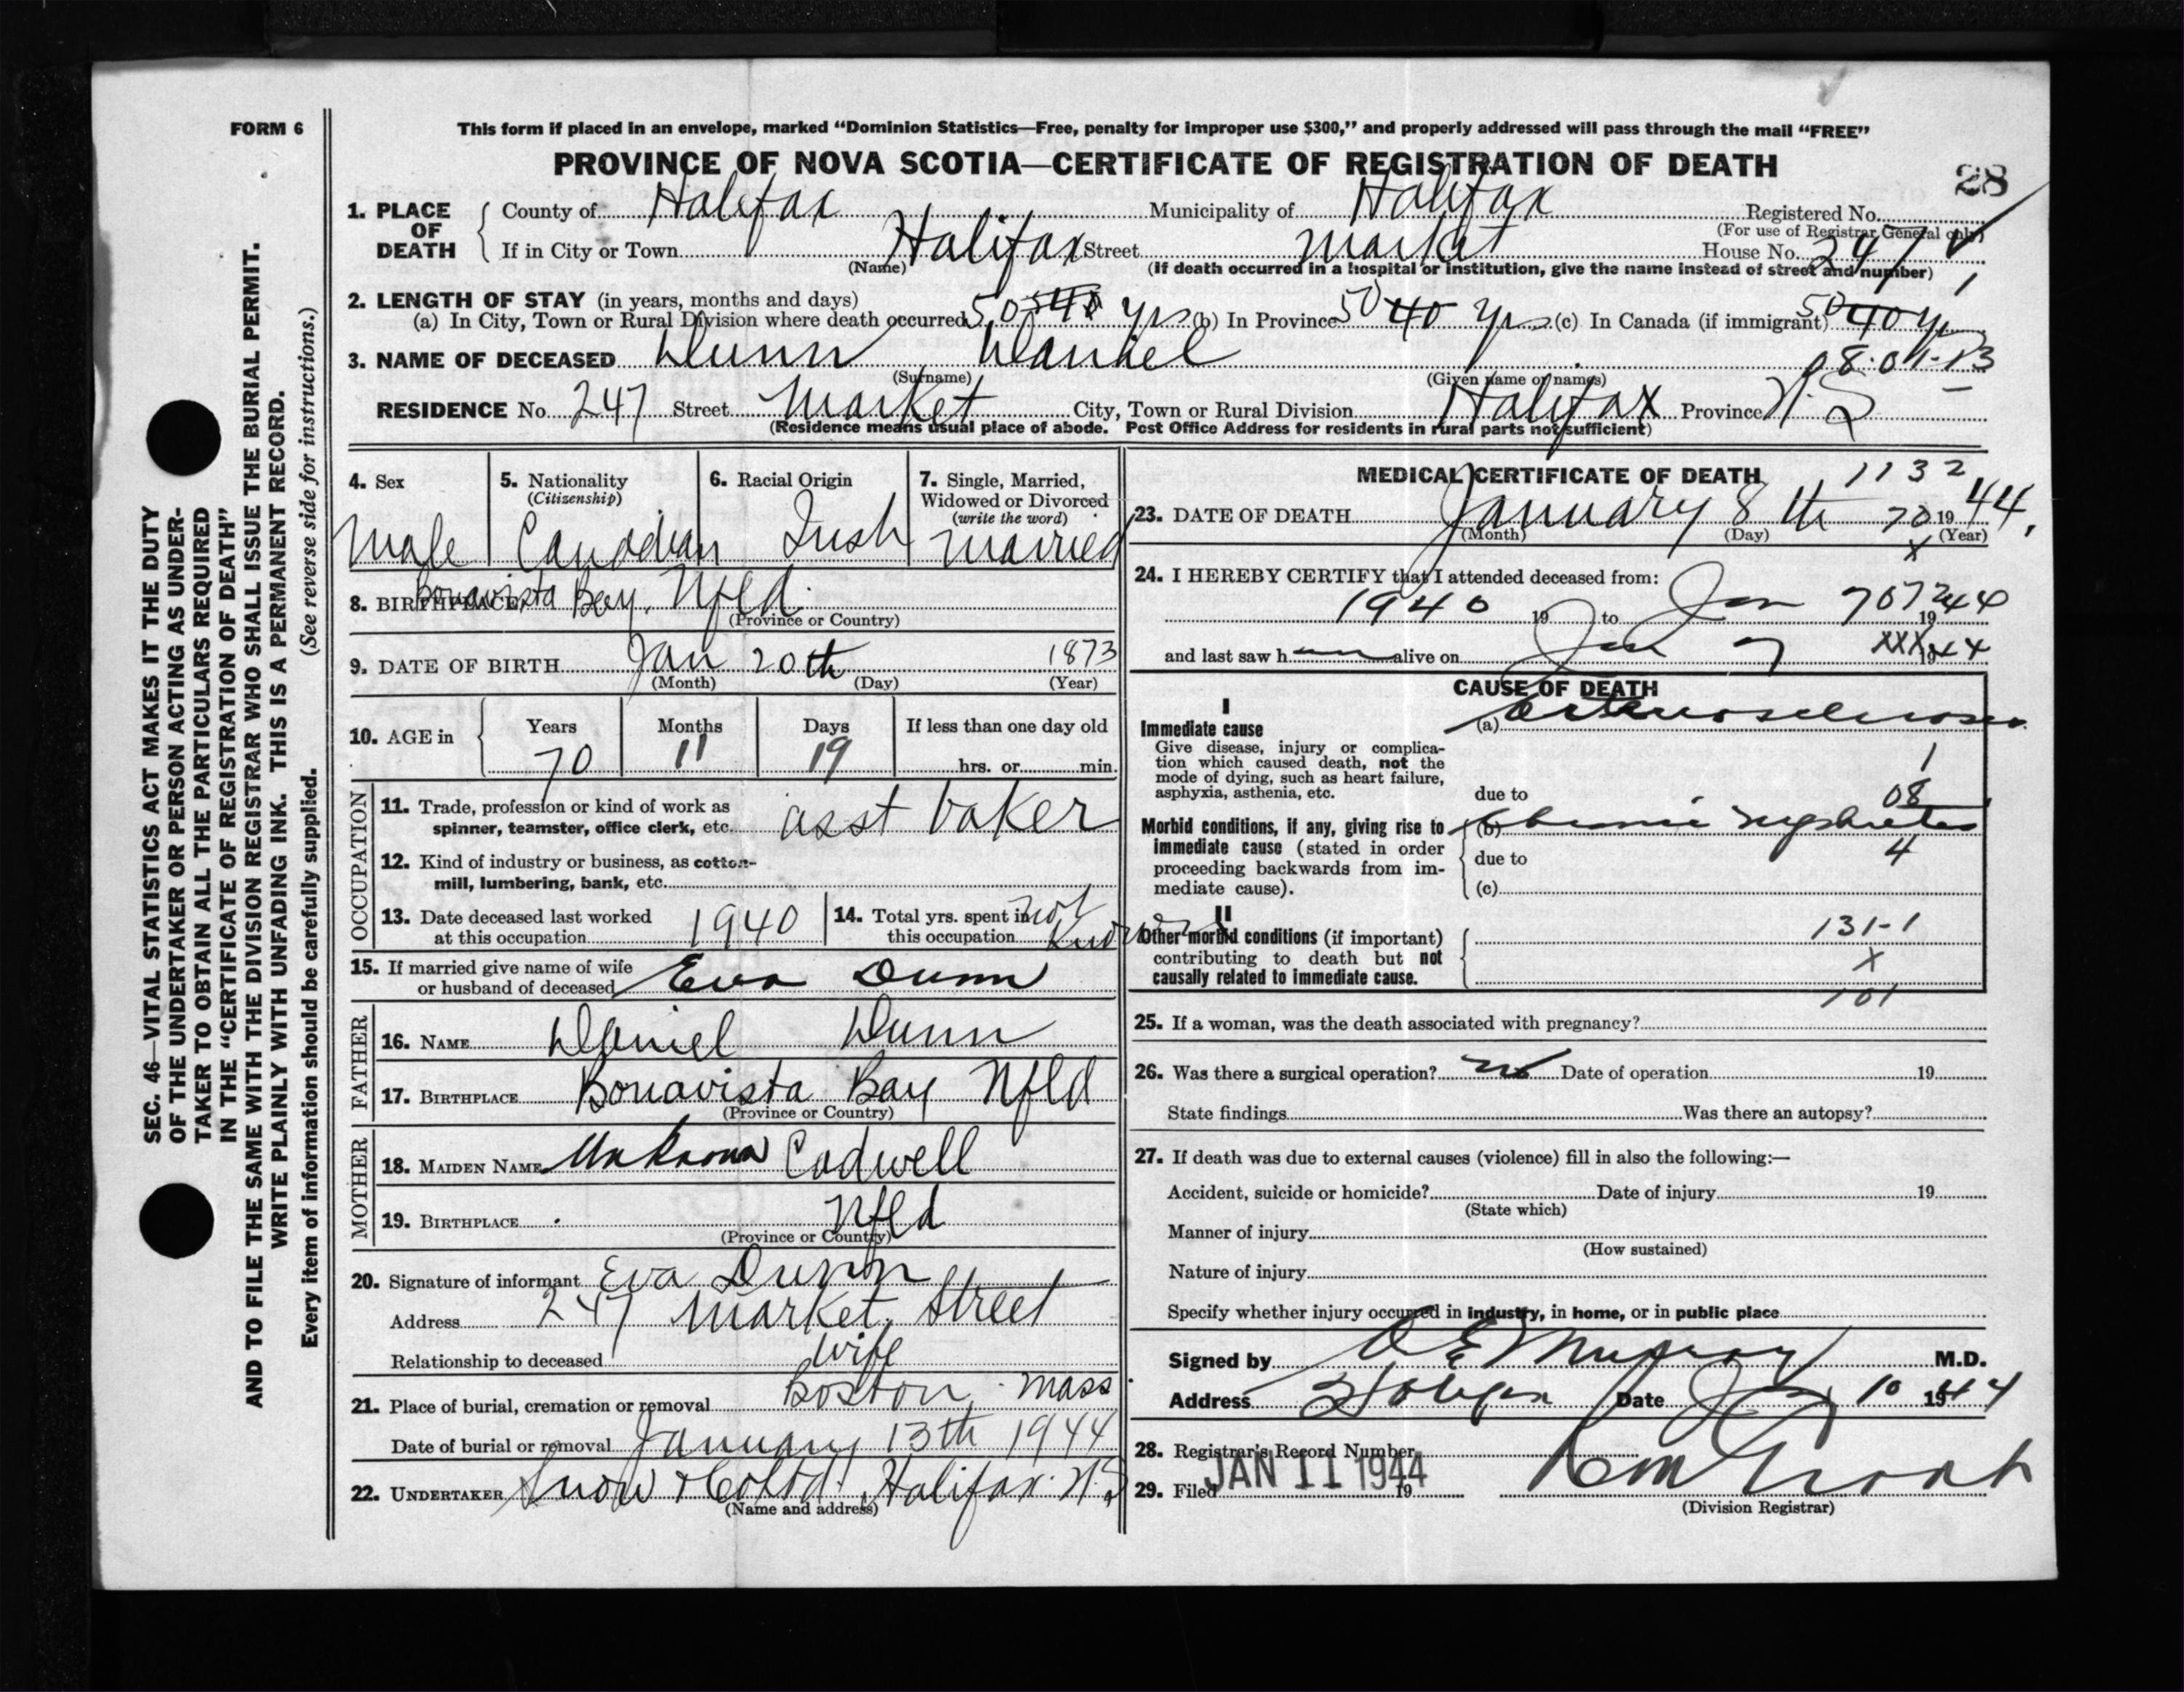 FORM 6
This form if placed in an envelope, marked “Dominion Statistics—Free, penalty for improper use $300,” and properly addressed will pass through the mail “FREE”
PROVINCE OF NOVA SCOTIA—CERTIFICATE OF REGISTRATION OF DEATH
28
1. PLACE OF DEATH
County of Halifax Municipality of Halifax Registered No.
(For use of Registrar General only)
If in City or Town Halifax Street Market House No. 247
(Name) (If death occurred in a hospital or institution, give the name instead of street and number)
2. LENGTH OF STAY (in years, months and days)
(a) In City, Town or Rural Division where death occurred 50 yrs (b) In Province 50 40 yrs (c) In Canada (if immigrant) 50 40 yrs
3. NAME OF DECEASED Dunn Daniel
(Surname) (Given name or names)
RESIDENCE No. 247 Street Market City, Town or Rural Division Halifax Province N.S
(Residence means usual place of abode. Post Office Address for residents in rural parts not sufficient)
4. Sex
Male
5. Nationality
(Citizenship)
Canadian
6. Racial Origin
Irish
7. Single, Married,
Widowed or Divorced
(write the word)
Married
8. BIRTHPLACE Bonavista Bay. Nfld.
(Province or Country)
9. DATE OF BIRTH Jan 20th 1873
(Month) (Day) (Year)
10. AGE in
Years Months Days If less than one day old
70 11 19 hrs. or min.
OCCUPATION
11. Trade, profession or kind of work as
spinner, teamster, office clerk, etc. asst baker
12. Kind of industry or business, as cotton-
mill, lumbering, bank, etc.
13. Date deceased last worked
at this occupation 1940
14. Total yrs. spent in
this occupation not known
15. If married give name of wife
or husband of deceased Eva Dunn
FATHER
16. NAME Daniel Dunn
17. BIRTHPLACE Bonavista Bay Nfld
(Province or Country)
MOTHER
18. MAIDEN NAME Unknown Cadwell
19. BIRTHPLACE Nfld
(Province or Country)
20. Signature of informant Eva Dunn
Address 247 Market Street
Relationship to deceased Wife
21. Place of burial, cremation or removal Boston Mass
Date of burial or removal January 13th 1944
22. UNDERTAKER Snow & Co Ltd. Halifax N.S
(Name and address)
MEDICAL CERTIFICATE OF DEATH 1132
23. DATE OF DEATH January 8th 70 1944.
(Month) (Day) (Year)
X
24. I HEREBY CERTIFY that I attended deceased from:
1940 19 to Jan 7 1944
and last saw h alive on Jan 7 XXX 1944
CAUSE OF DEATH
I
Immediate cause
Give disease, injury or complica-
tion which caused death, not the
mode of dying, such as heart failure,
asphyxia, asthenia, etc.
(a) arteriosclerosis
1
08
due to
Morbid conditions, if any, giving rise to
immediate cause (stated in order
proceeding backwards from im-
mediate cause).
(b) Chronic nephritis
4
due to
(c)
II
Other morbid conditions (if important)
contributing to death but not
causally related to immediate cause.
131-1
X
101
25. If a woman, was the death associated with pregnancy?
26. Was there a surgical operation? no Date of operation 19
State findings Was there an autopsy?
27. If death was due to external causes (violence) fill in also the following:—
Accident, suicide or homicide? Date of injury 19
(State which)
Manner of injury
(How sustained)
Nature of injury
Specify whether injury occurred in industry, in home, or in public place
Signed by Murray M.D.
Address Halifax Date Jan 10 1944
28. Registrar's Record Number
29. Filed JAN 11 1944 19
(Division Registrar)
SEC. 46—VITAL STATISTICS ACT MAKES IT THE DUTY
OF THE UNDERTAKER OR PERSON ACTING AS UNDER-
TAKER TO OBTAIN ALL THE PARTICULARS REQUIRED
IN THE “CERTIFICATE OF REGISTRATION OF DEATH”
AND TO FILE THE SAME WITH THE DIVISION REGISTRAR WHO SHALL ISSUE THE BURIAL PERMIT.
WRITE PLAINLY WITH UNFADING INK. THIS IS A PERMANENT RECORD.
Every item of information should be carefully supplied. (See reverse side for instructions.)